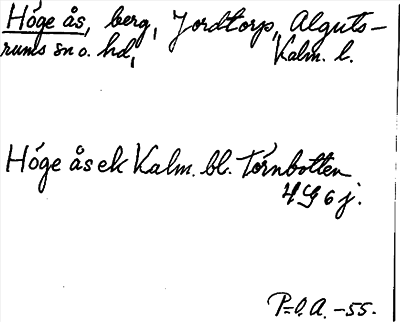 Höge ås, berg, Jordtorp, Alguts-
rums sn o. hd, Kalm. l.
Höge ås ek Kalm. bl. Törnbotten
4G 6 j.
P-l. A. -55.